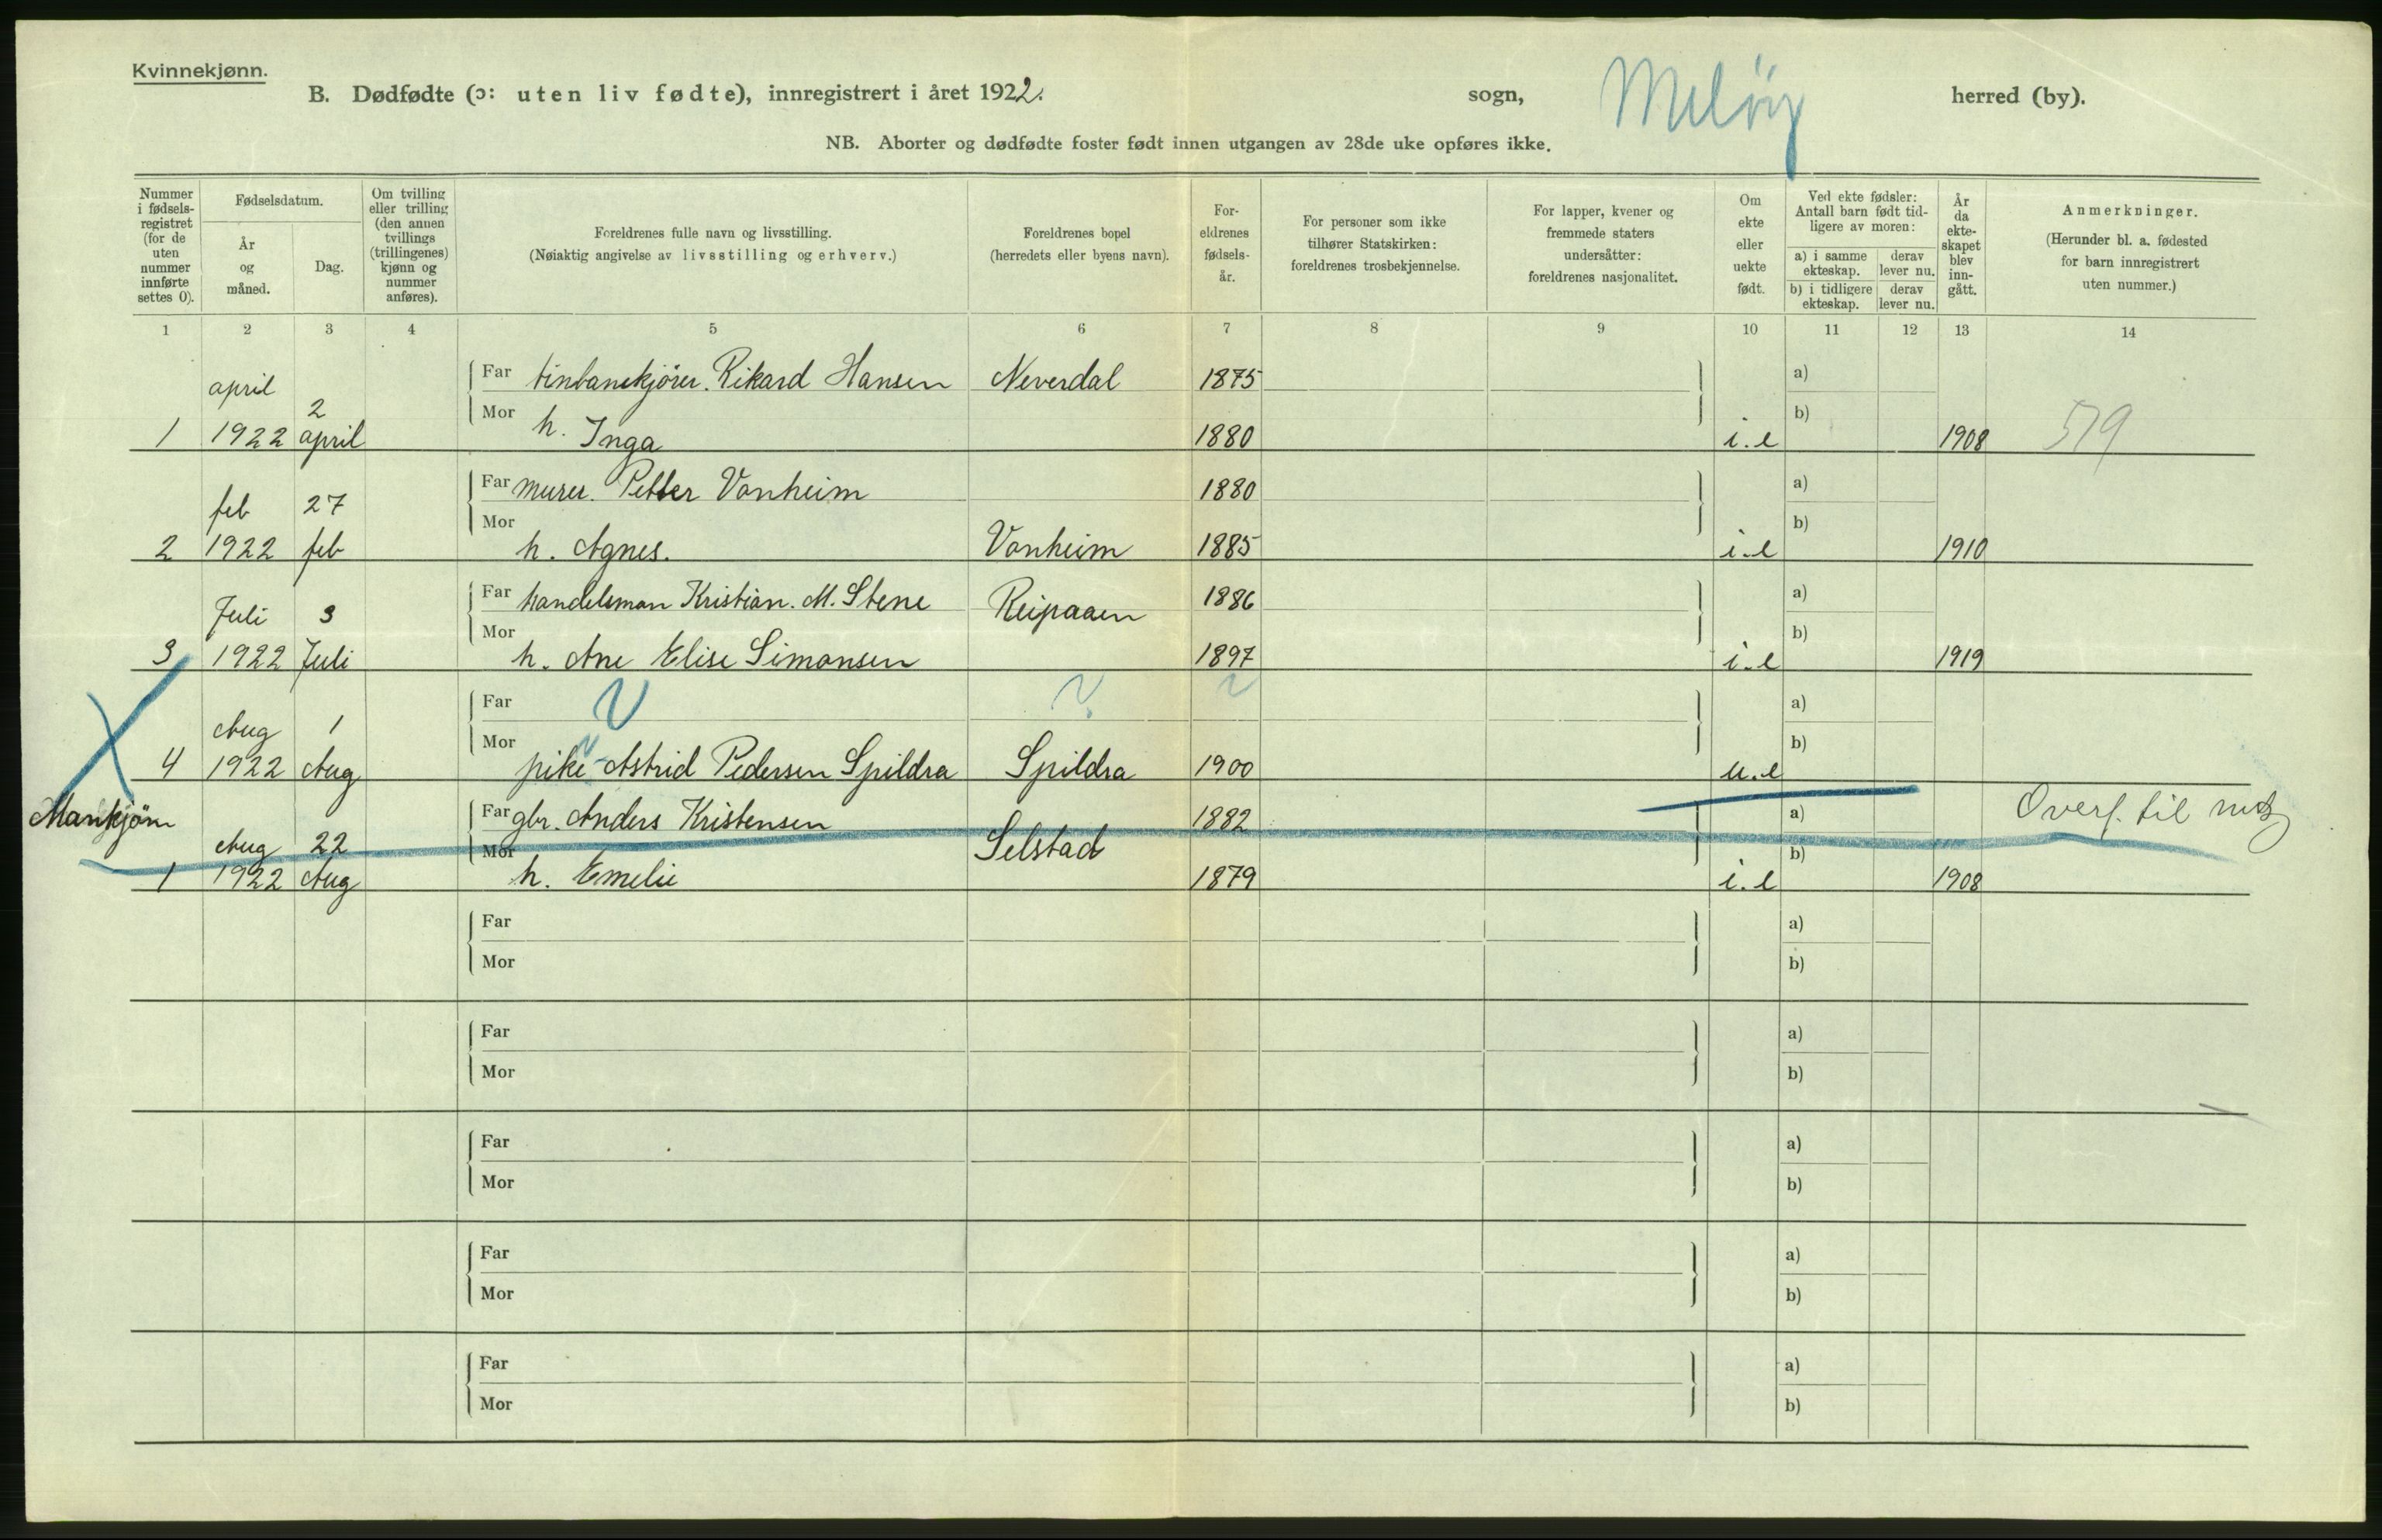 Kvinnekjønn.
B. Dødfødte (ɔ: uten liv fødte), innregistrert i året 1922. sogn, Meløy herred (by).
NB. Aborter og dødfødte foster født innen utgangen av 28de uke opføres ikke.
Nummer i fødsels-registret (for de uten nummer innførte settes 0).
Fødselsdatum.
År og måned.
Dag.
Om tvilling eller trilling (den annen tvillings (trillingenes) kjønn og nummer anføres).
Foreldrenes fulle navn og livsstilling.
(Nøiaktig angivelse av livsstilling og erhverv.)
Foreldrenes bopel
(herredets eller byens navn).
For-eldrenes fødsels-år.
For personer som ikke tilhører Statskirken: foreldrenes trosbekjennelse.
For lapper, kvener og fremmede staters undersåtter: foreldrenes nasjonalitet.
Om ekte eller uekte født.
Ved ekte fødsler: Antall barn født tid-ligere av moren:
a) i samme ekteskap. derav lever nu.
b) i tidligere ekteskap. derav lever nu.
År da ekte-skapet blev inn-gått.
Anmerkninger.
(Herunder bl. a. fødested for barn innregistrert uten nummer.)
1 2 3 4 5 6 7 8 9 10 11 12 13 14
april Far Rikard Hansen Neverdal 1875 a)
2 Mor b)
1 1922 april h. Inga 1880 i.e 1908 519
Far murer. Petter Vonheim 1880 a)
feb 27 Mor b)
2 1922 feb h. Agnes. Vonheim 1885 i.e 1910
Far handelsman Kristian. M. Stene Reipaaen 1886 a)
Juli 3 Mor b)
3 1922 Juli h. Ane Elise Simonsen 1897 i.e 1919
Far a)
Aug 1 Mor b)
4 1922 Aug pike Astrid Pedersen Spildra Spildra 1900 u.e
Mankjøn Far gbr. Anders Kristensen 1882 a) Overf. til
Aug 22 Mor Selstad b)
1 1922 Aug h. Emelie 1879 i.e 1908
Far a)
Mor b)
Far a)
Mor b)
Far a)
Mor b)
Far a)
Mor b)
Far a)
Mor b)